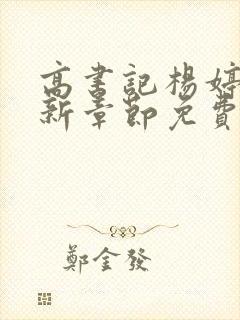 高书記楊婷
新章節免費
鄭金發